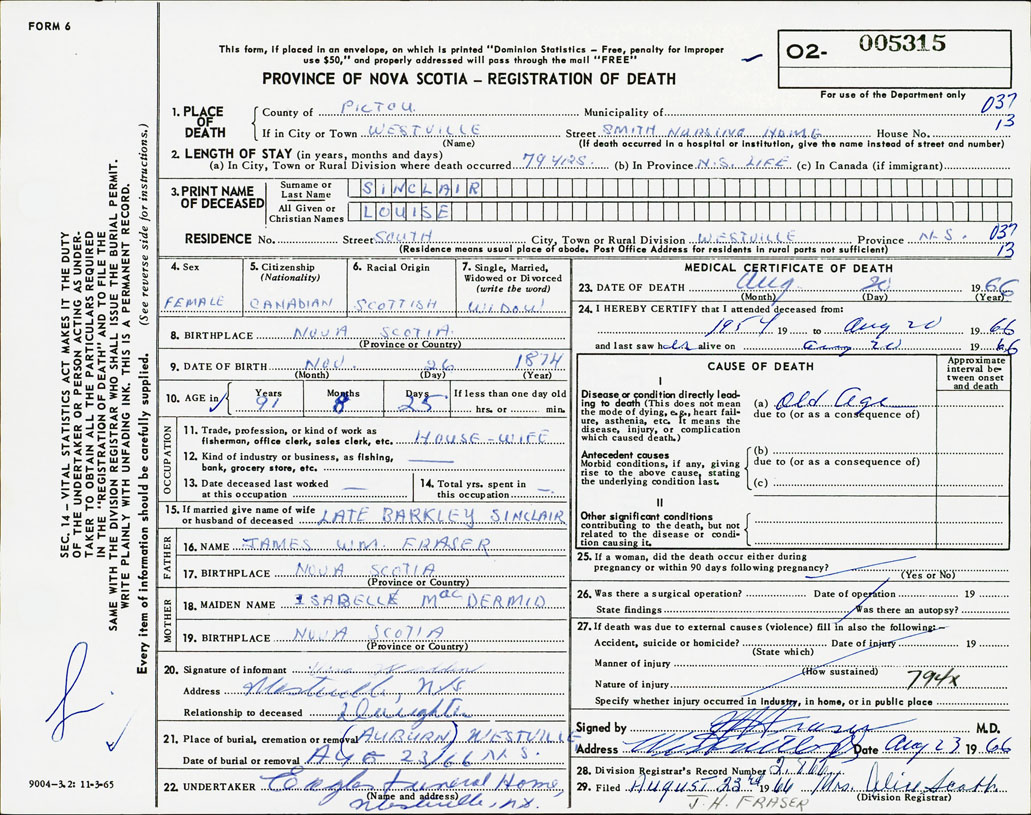 FORM 6
This form, if placed in an envelope, on which is printed "Dominion Statistics – Free, penalty for improper
use $50," and properly addressed will pass through the mail "FREE"
O2- 005315
PROVINCE OF NOVA SCOTIA – REGISTRATION OF DEATH
For use of the Department only
037
13
1. PLACE OF DEATH
County of PICTOU Municipality of
If in City or Town WESTVILLE Street SMITH NURSING HOME House No.
(Name) (If death occurred in a hospital or institution, give the name instead of street and number)
2. LENGTH OF STAY (in years, months and days)
(a) In City, Town or Rural Division where death occurred 79 YRS. (b) In Province N.S. LIFE (c) In Canada (if immigrant)
3. PRINT NAME OF DECEASED
Surname or Last Name SINCLAIR
All Given or Christian Names LOUISE
RESIDENCE No. Street SOUTH City, Town or Rural Division WESTVILLE Province N.S. 037
(Residence means usual place of abode. Post Office Address for residents in rural parts not sufficient) 13
4. Sex FEMALE
5. Citizenship (Nationality) CANADIAN
6. Racial Origin SCOTTISH
7. Single, Married, Widowed or Divorced (write the word) WIDOW
8. BIRTHPLACE NOVA SCOTIA
(Province or Country)
9. DATE OF BIRTH NOV 26 1874
(Month) (Day) (Year)
10. AGE in Years 91 Months 8 Days 25 If less than one day old
hrs. or min.
OCCUPATION
11. Trade, profession, or kind of work as
fisherman, office clerk, sales clerk, etc. HOUSE-WIFE
12. Kind of industry or business, as fishing,
bank, grocery store, etc.
13. Date deceased last worked
at this occupation
14. Total yrs. spent in
this occupation
15. If married give name of wife
or husband of deceased LATE BARKLEY SINCLAIR
FATHER
16. NAME JAMES WM. FRASER
17. BIRTHPLACE NOVA SCOTIA
(Province or Country)
MOTHER
18. MAIDEN NAME ISABELLE MacDERMID
19. BIRTHPLACE NOVA SCOTIA
(Province or Country)
20. Signature of informant
Address Westville, N/S
Relationship to deceased Daughter
21. Place of burial, cremation or removal (AUBURN) WESTVILLE
Date of burial or removal AUG 23/66 N.S.
22. UNDERTAKER Eagles Funeral Home,
(Name and address) Westville, N.S.
MEDICAL CERTIFICATE OF DEATH
23. DATE OF DEATH Aug 20 1966
(Month) (Day) (Year)
24. I HEREBY CERTIFY that I attended deceased from:
1954 19 to Aug 20 1966
and last saw her alive on Aug 20 1966
CAUSE OF DEATH
Approximate interval between onset and death
I
Disease or condition directly leading to death (This does not mean the mode of dying, e.g., heart failure, asthenia, etc. It means the disease, injury, or complication which caused death.)
(a) Old Age
due to (or as a consequence of)
Antecedent causes
Morbid conditions, if any, giving rise to the above cause, stating the underlying condition last.
(b)
due to (or as a consequence of)
(c)
II
Other significant conditions
contributing to the death, but not related to the disease or condition causing it.
25. If a woman, did the death occur either during
pregnancy or within 90 days following pregnancy?
(Yes or No)
26. Was there a surgical operation? Date of operation 19
State findings Was there an autopsy?
27. If death was due to external causes (violence) fill in also the following:–
Accident, suicide or homicide? Date of injury 19
(State which)
Manner of injury
(How sustained)
Nature of injury 794X
Specify whether injury occurred in industry, in home, or in public place
Signed by Fraser M.D.
Address Westville Date Aug 23 1966
28. Division Registrar's Record Number
29. Filed August 23rd 1966 Mrs.
J.H. FRASER (Division Registrar)
SEC. 14 – VITAL STATISTICS ACT MAKES IT THE DUTY
OF THE UNDERTAKER OR PERSON ACTING AS UNDER-
TAKER TO OBTAIN ALL THE PARTICULARS REQUIRED
IN THE "REGISTRATION OF DEATH" AND TO FILE THE
SAME WITH THE DIVISION REGISTRAR WHO SHALL ISSUE THE BURIAL PERMIT.
WRITE PLAINLY WITH UNFADING INK. THIS IS A PERMANENT RECORD.
Every item of information should be carefully supplied. (See reverse side for instructions.)
9004-3.2: 11-3-65